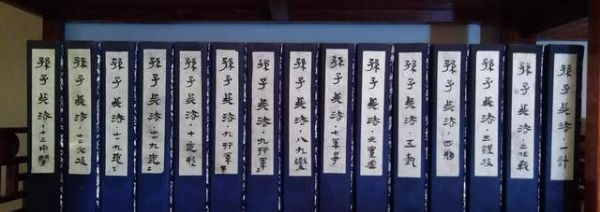 孫子兵法·一計
孫子兵法·二作戰
孫子兵法·三謀攻
孫子兵法·四形
孫子兵法·五埶
孫子兵法·六實虛
孫子兵法·七軍爭
孫子兵法·八九變
孫子兵法·九行軍上
孫子兵法·九行軍下
孫子兵法·十地形
孫子兵法·十一九地上
孫子兵法·十一九地下
孫子兵法·十二火攻
孫子兵法·十三用間